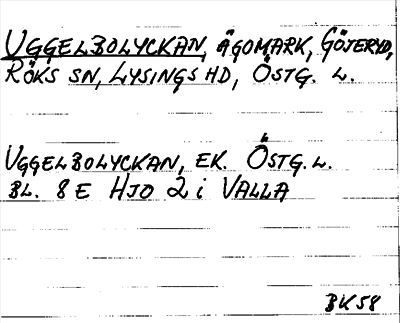 UGGELBOLYCKAN, ÄGOMARK, GÖJERYD,
RÖKS SN, LYSINGS HD, ÖSTG. L.
UGGELBOLYCKAN, EK. ÖSTG. L.
BL. 8 E HJO 2 i VALLA
BK58